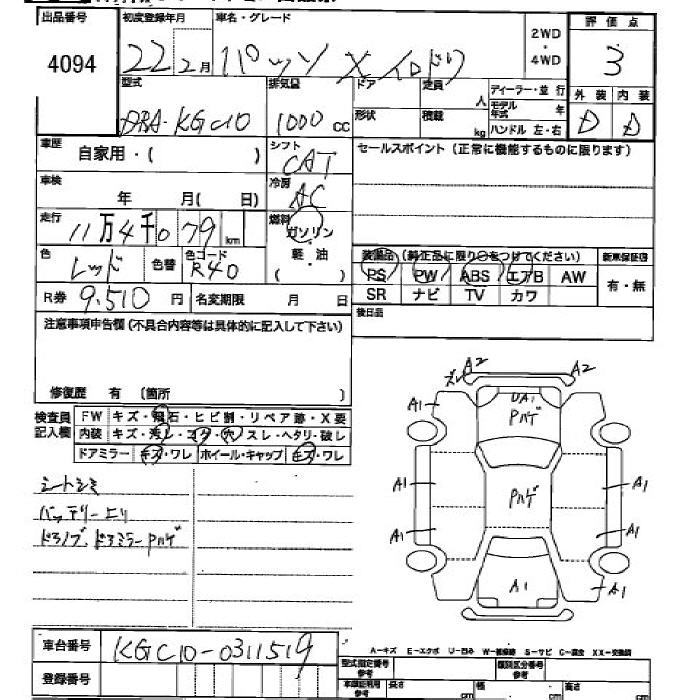 出品番号 初度登録年月 車名・グレード 2WD・4WD 評価点
4094 22年2月 パッソ X イロドリ 3
型式 排気量 ドア 定員 人 ディーラー・並行 外装 内装
DBA-KGC10 1000cc 形状 積載 kg モデル年式 年 D D
ハンドル 左・右
車歴 自家用・( ) シフト CAT セールスポイント(正常に機能するものに限ります)
車検 年 月( 日) 冷房 AC
走行 11万4千079km 燃料 ガソリン
色 レッド 色替 色コード R40 軽・油 ( ・ ) 装備品(純正品に限り○をつけてください) 新車保証書
PS PW ABS エアB AW 有・無
R券 9,510円 名変期限 月 日 SR ナビ TV カワ
注意事項申告欄(不具合内容等は具体的に記入して下さい) 後日品
修復歴 有 〔箇所 〕
検査員記入欄 FW キズ・飛石・ヒビ割・リペア跡・X要
内装 キズ・汚レ・コゲ・穴・スレ・ヘタリ・破レ
ドアミラー キズ・ワレ ホイール・キャップ キズ・ワレ
シートシミ
バッテリー上リ
ドアノブ、ドアミラーPハゲ
ズレ A2 A2
A1 UA1 A1
Pハゲ
A1 Pハゲ A1
A1 A1
A1 A1
車台番号 KGC10-0311519
A-キズ E-エクボ U-凹み W-補修跡 S-サビ C-腐食 XX-交換済
登録番号 型式指定番号 参考 類別区分番号 参考
車庫証明用 参考 長さ cm 幅 cm 高さ cm